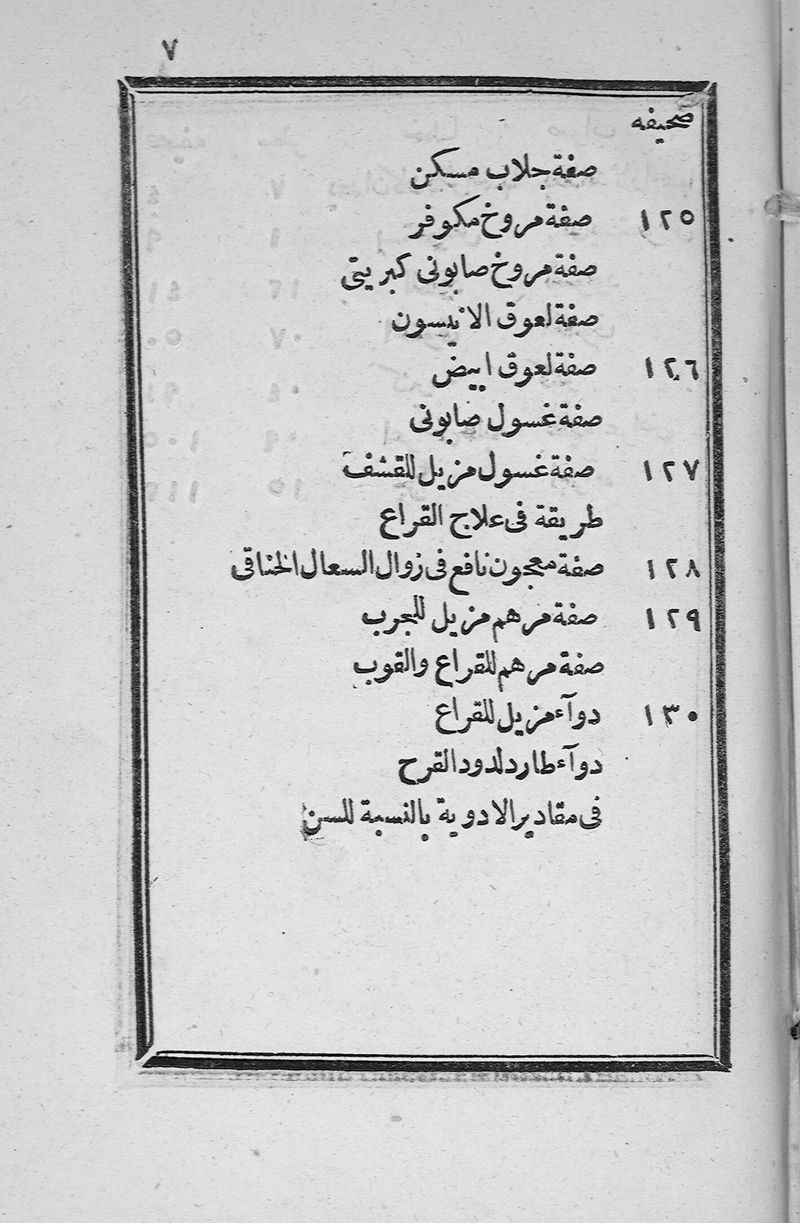 ٧
صحيفه
صفة جلاب مسكن
١٢٥ صفة مروخ مكوفر
صفة مروخ صابونى كبريتى
صفة لعوق الانيسون
١٢٦ صفة لعوق ابيض
صفة غسول صابونى
١٢٧ صفة غسول مزيل للقشف
طريقة فى علاج القراع
١٢٨ صفة معجون نافع فى زوال السعال الخناقى
١٢٩ صفة مرهم مزيل للجرب
صفة مرهم للقراع والقوب
١٣٠ دوآء مزيل للقراع
دوآء طارد لدود القرح
فى مقادير الادوية بالنسبة للسن